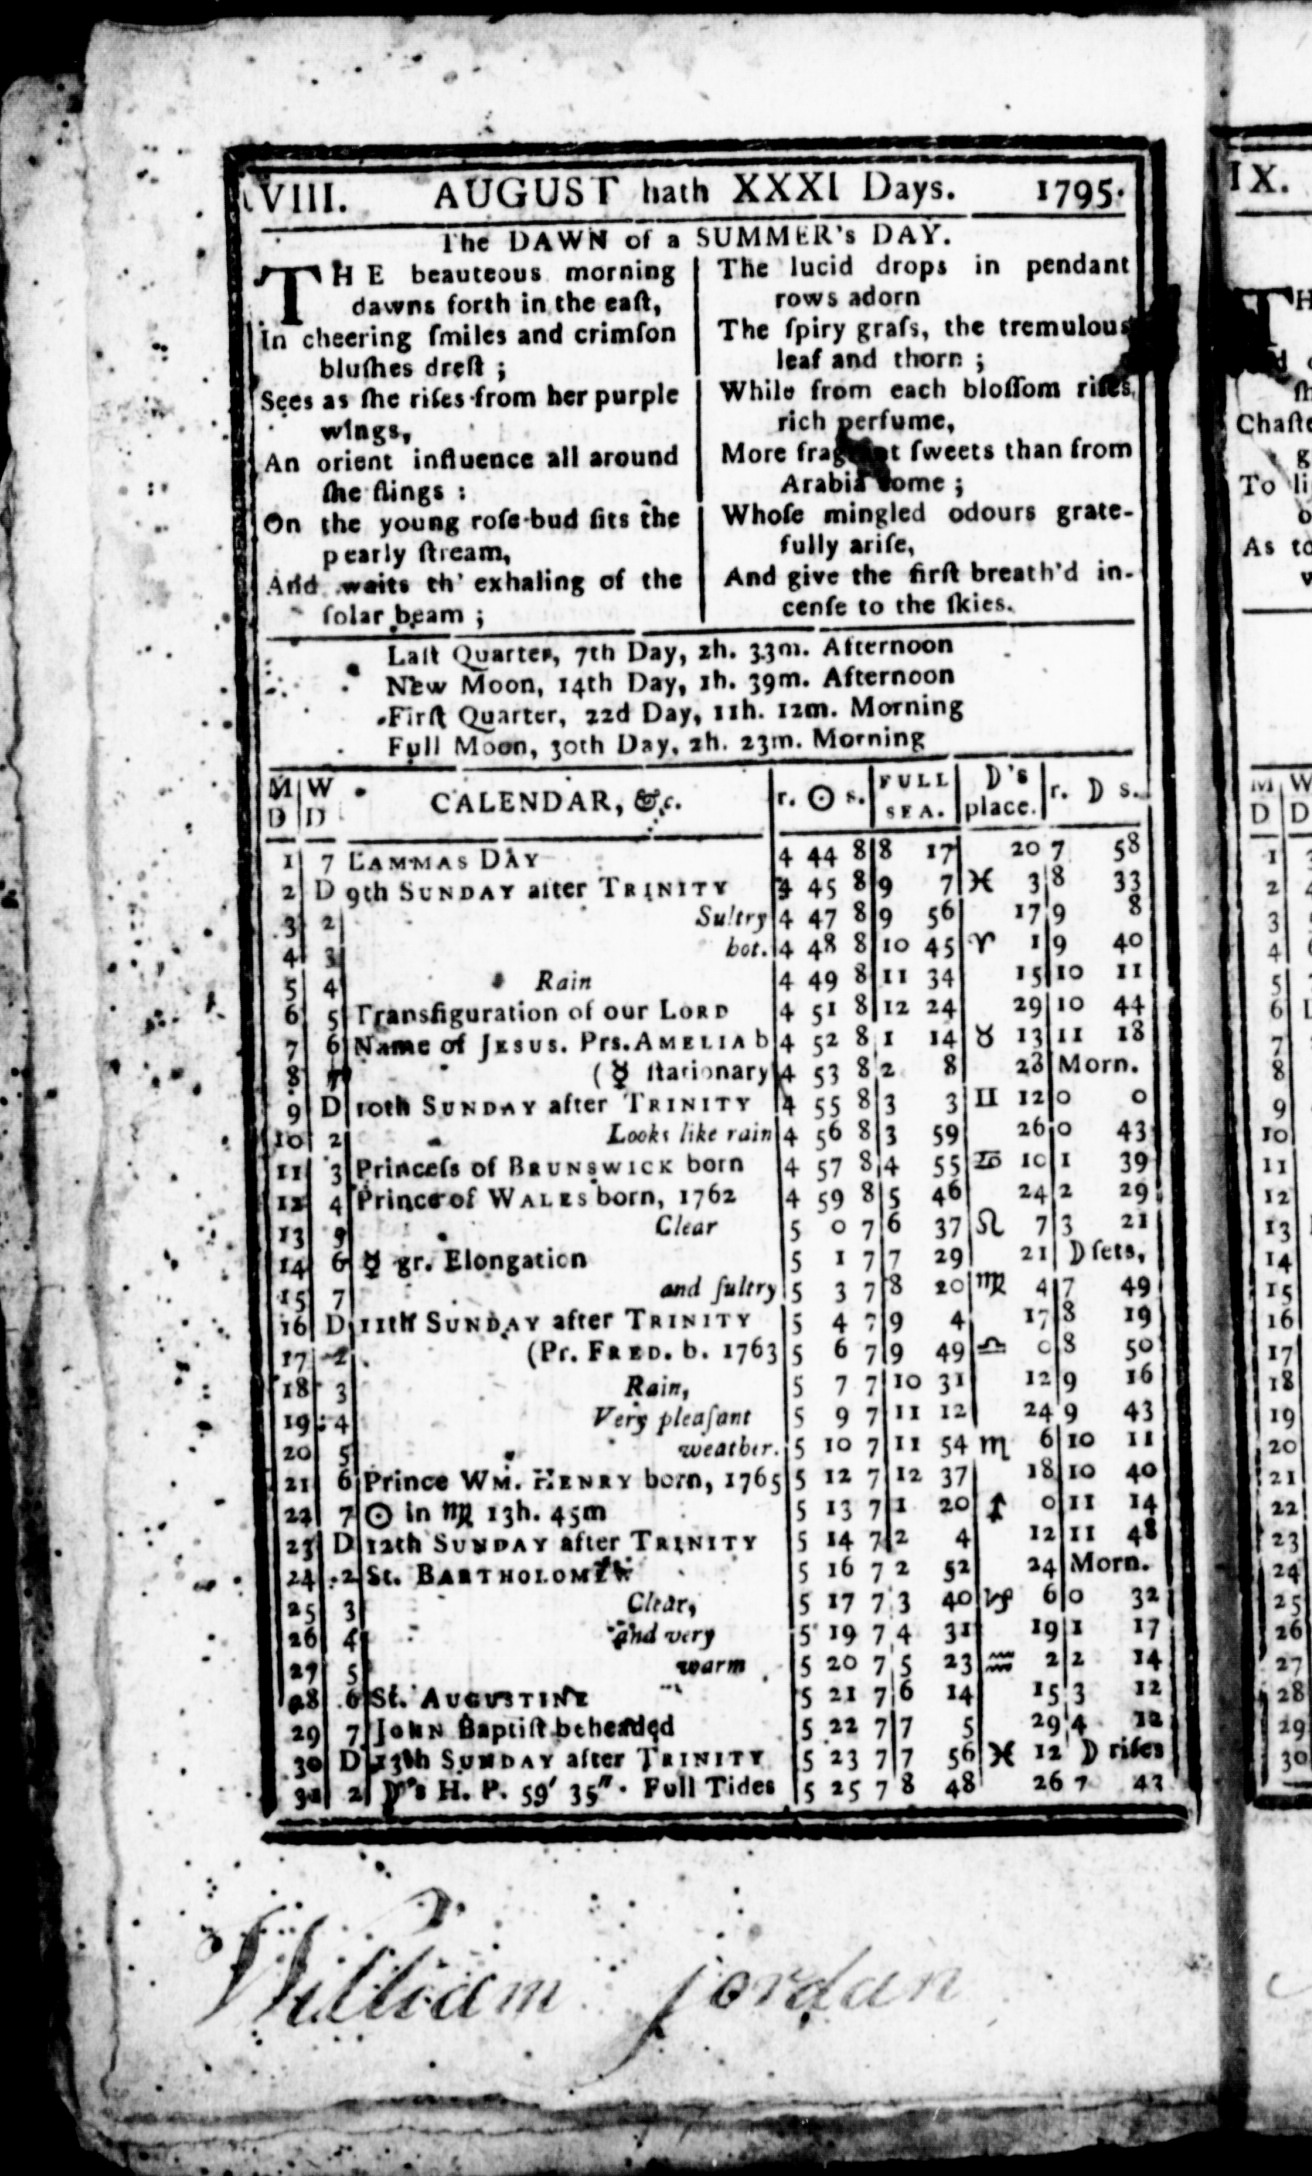 VIII. AUGUST hath XXXI Days. 1795.
The DAWN of a SUMMER's DAY.
THE beauteous morning
dawns forth in the eaſt,
In cheering ſmiles and crimſon
bluſhes dreſt ;
Sees as ſhe riſes from her purple
wings,
An orient influence all around
ſhe flings :
On the young roſe-bud ſits the
pearly ſtream,
And waits th' exhaling of the
ſolar beam ;
The lucid drops in pendant
rows adorn
The ſpiry graſs, the tremulous
leaf and thorn ;
While from each bloſſom riſes,
rich perfume,
More fragrant ſweets than from
Arabia come ;
Whoſe mingled odours grate-
fully ariſe,
And give the firſt breath'd in-
cenſe to the ſkies.
Laſt Quarter, 7th Day, 2h. 33m. Afternoon
New Moon, 14th Day, 1h. 39m. Afternoon
Firſt Quarter, 22d Day, 11h. 12m. Morning
Full Moon, 30th Day, 2h. 23m. Morning
M D W D CALENDAR, &c. r. ☉ s. FULL SEA. ☽'s place. r. ☽ s.
1 7 LAMMAS DAY 4 44 8 8 17 20 7 58
2 D 9th SUNDAY after TRINITY 4 45 8 9 7 ♓ 3 8 33
3 2 Sultry 4 47 8 9 56 17 9 8
4 3 hot. 4 48 8 10 45 ♈ 1 9 40
5 4 Rain 4 49 8 11 34 15 10 11
6 5 Transfiguration of our LORD 4 51 8 12 24 29 10 44
7 6 Name of JESUS. Prs. AMELIA b 4 52 8 1 14 ♉ 13 11 18
8 7 (☿ ſtationary 4 53 8 2 8 28 Morn.
9 D 10th SUNDAY after TRINITY 4 55 8 3 3 ♊ 12 0 0
10 2 Looks like rain 4 56 8 3 59 26 0 43
11 3 Princeſs of BRUNSWICK born 4 57 8 4 55 ♋ 10 1 39
12 4 Prince of WALES born, 1762 4 59 8 5 46 24 2 29
13 5 Clear 5 0 7 6 37 ♌ 7 3 21
14 6 ☿ gr. Elongation 5 1 7 7 29 21 ☽ ſets,
15 7 and ſultry 5 3 7 8 20 ♍ 4 7 49
16 D 11th SUNDAY after TRINITY 5 4 7 9 4 17 8 19
17 2 (Pr. FRED. b. 1763 5 6 7 9 49 ♎ 0 8 50
18 3 Rain, 5 7 7 10 31 12 9 16
19 4 Very pleaſant 5 9 7 11 12 24 9 43
20 5 weather. 5 10 7 11 54 ♏ 6 10 11
21 6 Prince WM. HENRY born, 1765 5 12 7 12 37 18 10 40
22 7 ☉ in ♍ 13h. 45m 5 13 7 1 20 ♐ 0 11 14
23 D 12th SUNDAY after TRINITY 5 14 7 2 4 12 11 48
24 2 St. BARTHOLOMEW 5 16 7 2 52 24 Morn.
25 3 Clear, 5 17 7 3 40 ♑ 6 0 32
26 4 and very 5 19 7 4 31 19 1 17
27 5 warm 5 20 7 5 23 ♒ 2 2 14
28 6 St. AUGUSTINE 5 21 7 6 14 15 3 12
29 7 JOHN Baptiſt beheaded 5 22 7 7 5 29 4 12
30 D 13th SUNDAY after TRINITY 5 23 7 7 56 ♓ 12 ☽ riſes
31 2 ☽'s H. P. 59′ 35″. Full Tides 5 25 7 8 48 26 7 43
William jordan
IX.
M W
D D
1
2
3
4
5
6
7
8
9
10
11
12
13
14
15
16
17
18
19
20
21
22
23
24
25
26
27
28
29
30